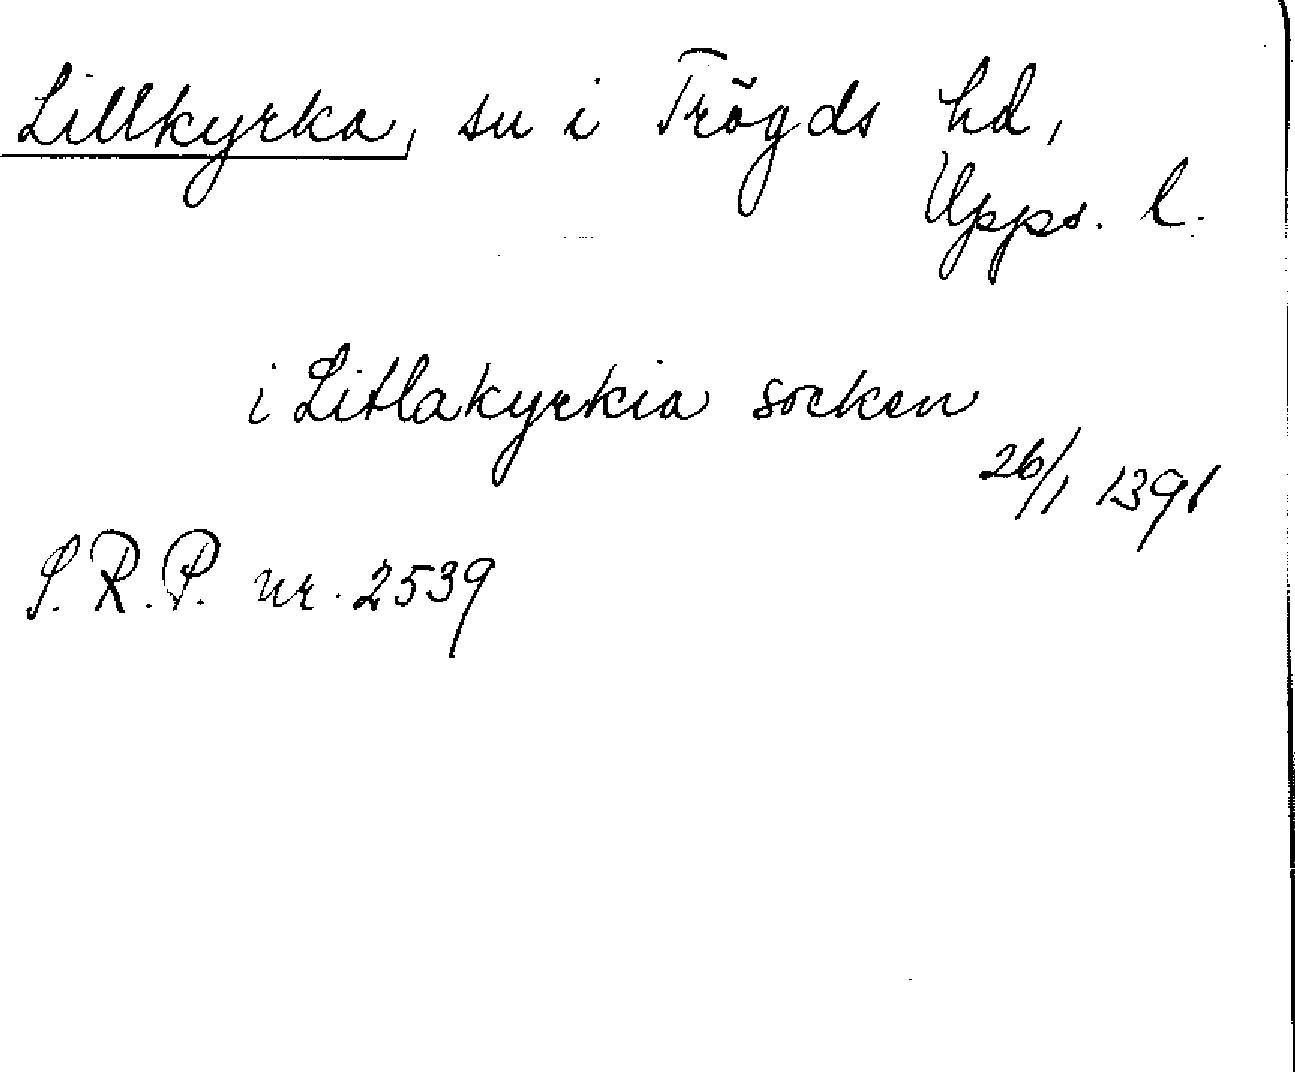 Lillkyrka, sn i Trögds hd,
Upps. l.
i Litlakyrkia socken
26/1 1391
S.R.P. nr. 2539